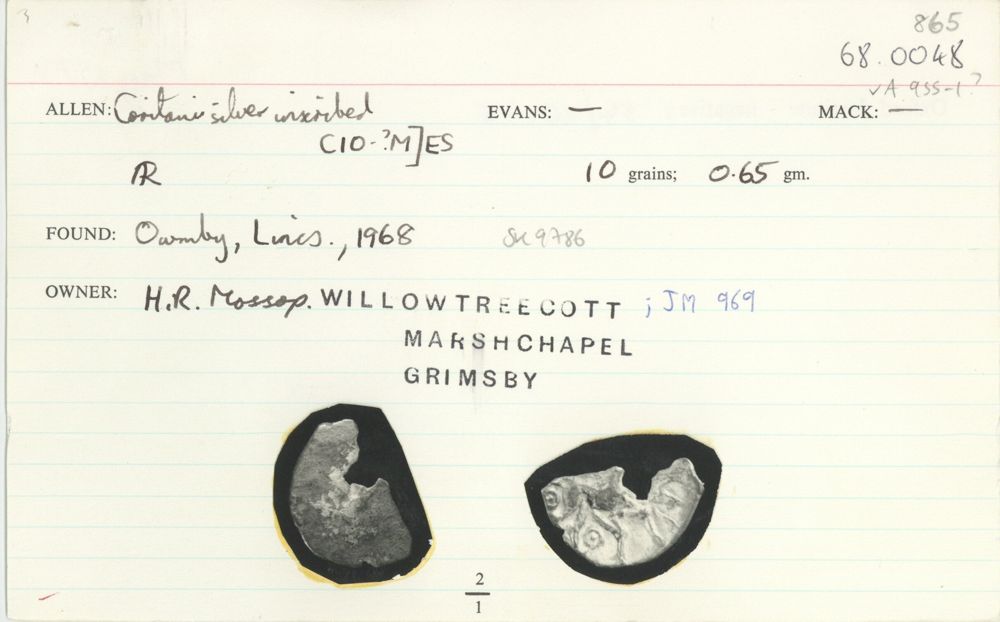 3
865
68.0048
√A 955-1?
ALLEN: Coritani silver inscribed EVANS: — MACK: —
CIO-?M]ES
AR 10 grains; 0.65 gm.
FOUND: Owmby, Lincs., 1968 SK 9786
OWNER: H.R. Mossop. WILLOWTREE COTT ; JM 969
MARSHCHAPEL
GRIMSBY
2
1